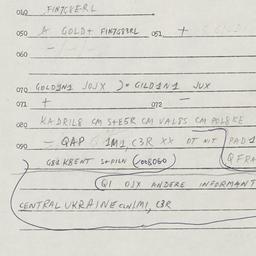 040 FIN7GXERL
050 A GOLD+ FIN7G83RL 051 +
060
070 GOLD1N1 JOJX )= GILD1N1 JUX
071 + 072 -
080 KADRIL8 CM S+E5R CM VAL8S CM POL8KE
090 = QAP 1M1, C3R XX OT NIT PAD1
G8LKBENT S+DILN V08060 QFRA
QI OJX ANDERE INFORMANT
CENTRAL UKRAINE CLN1M1, C3R